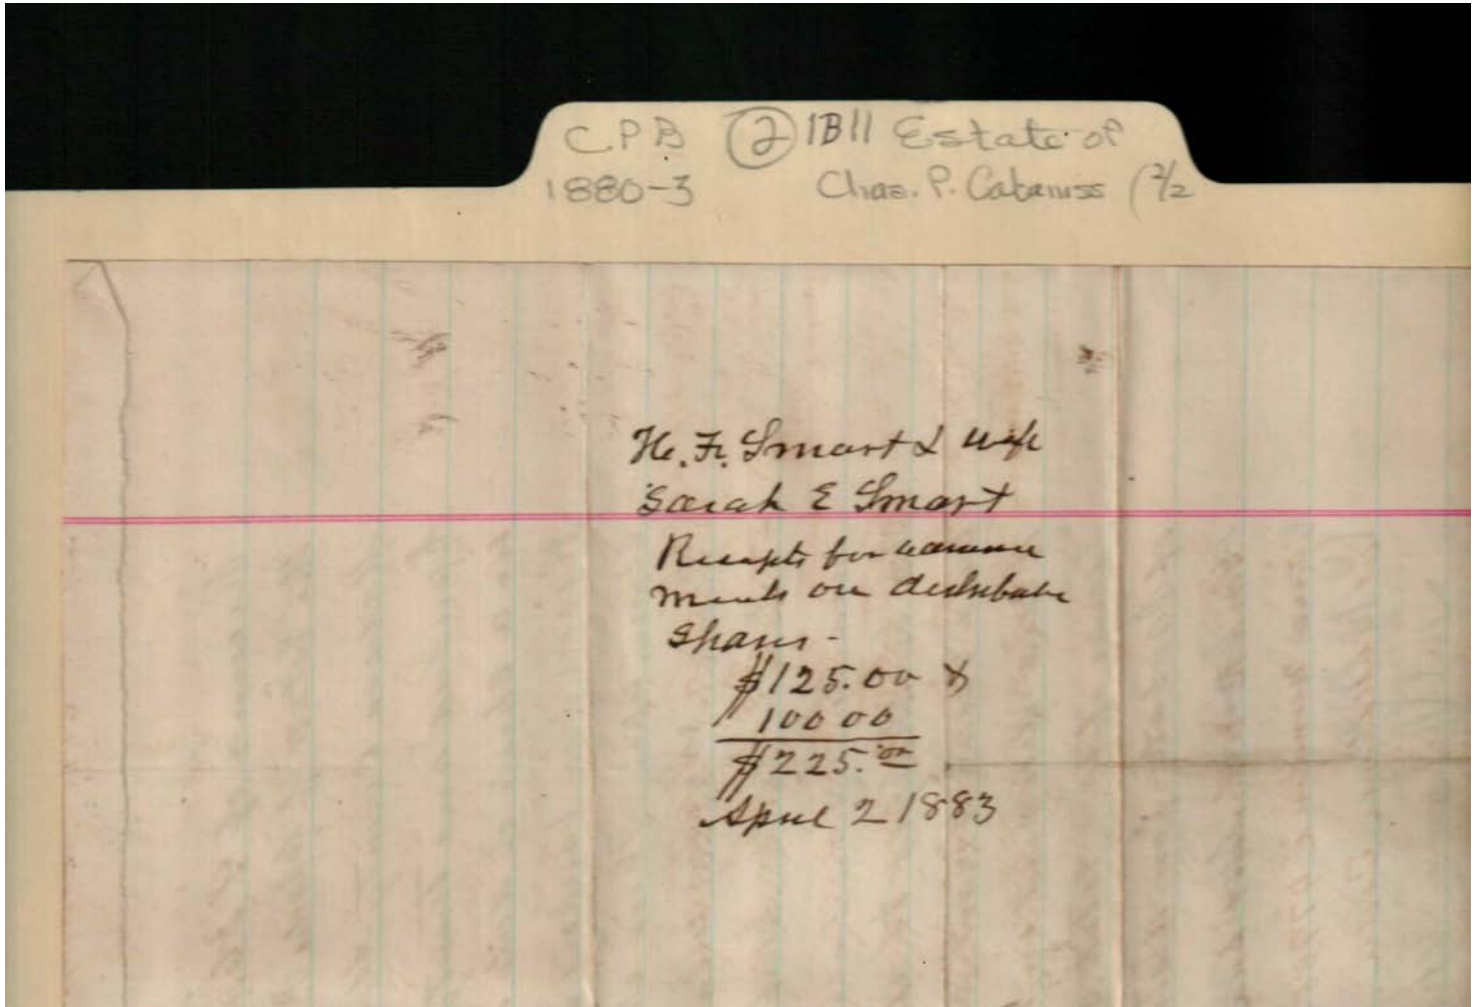 CPB ② 1B11 Estate of
1880-3 Chas. P. Cabaniss (2/2
H. F. Smart & wife
Sarah E Smart
Receipts for
ments on distributive
Shares -
$125.00
100 00
$225.00
April 2 1883